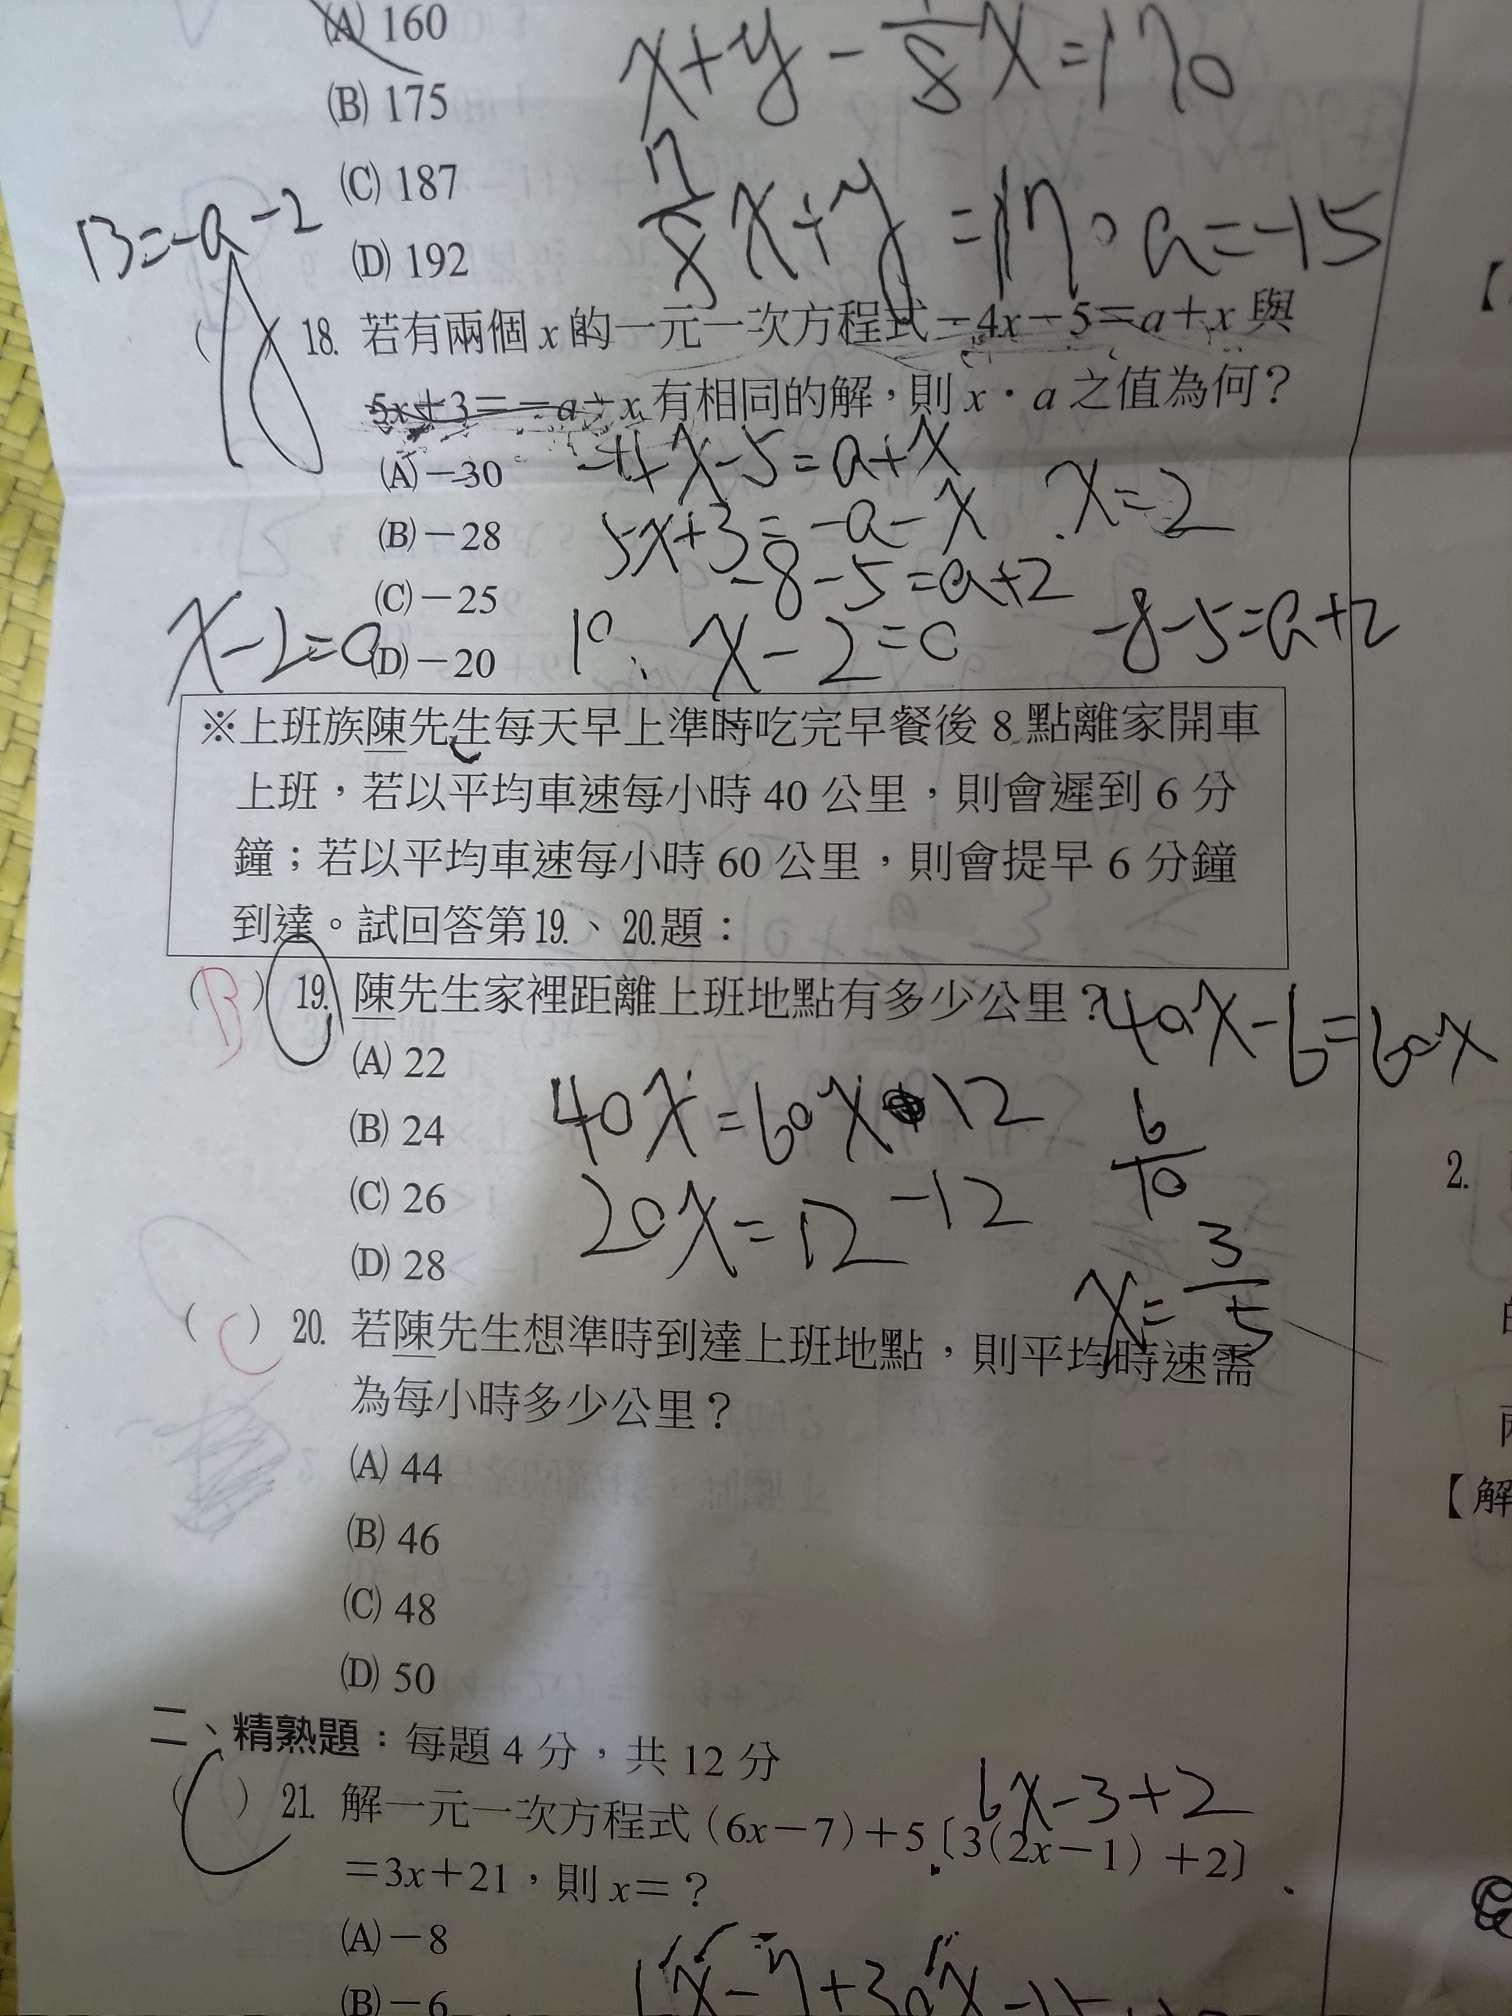 (A) 160
x+y-1/8x=170
(B) 175
(C) 187
7/8x+y=170
a=-15
13=-a-2
(D) 192
18. 若有兩個 x 的一元一次方程式-4x-5=a+x 與
5x+3=-a-x 有相同的解，則 x·a 之值為何？
-4x-5=a+x
(A)-30
5x+3=-a-x
x=2
(B)-28
-8-5=a+2
(C)-25
x-2=0
-8-5=a+2
x-2=0
(D)-20
※上班族陳先生每天早上準時吃完早餐後 8 點離家開車
上班，若以平均車速每小時 40 公里，則會遲到 6 分
鐘；若以平均車速每小時 60 公里，則會提早 6 分鐘
到達。試回答第19.、20.題：
(B) 19. 陳先生家裡距離上班地點有多少公里？
40x-6=60x
(A) 22
40x=60x-12
(B) 24
6/10
20x=12
-12
(C) 26
x=3/5
(D) 28
(C) 20. 若陳先生想準時到達上班地點，則平均時速需
為每小時多少公里？
(A) 44
(B) 46
(C) 48
(D) 50
二、精熟題：每題 4 分，共 12 分
6x-3+2
(C) 21. 解一元一次方程式 (6x-7)+5〔3(2x-1)+2〕
=3x+21，則 x=？
(A)-8
(B)-6
2.
【解